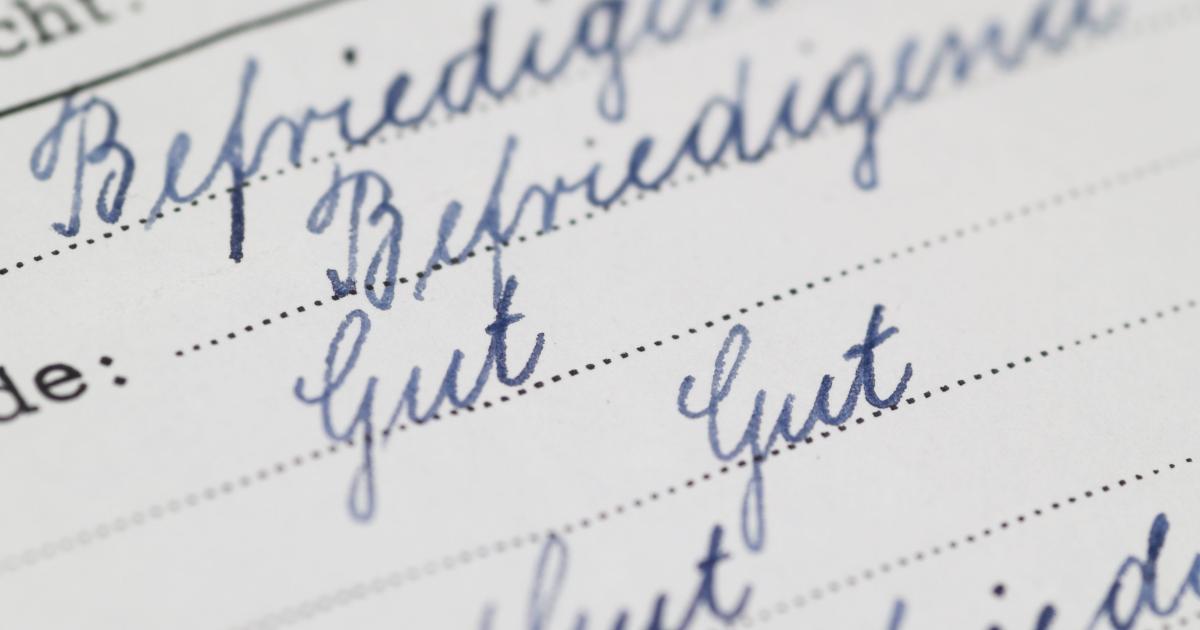 cht.
Befriedigen
Befriedigend
de:
Gut
Gut
Gut